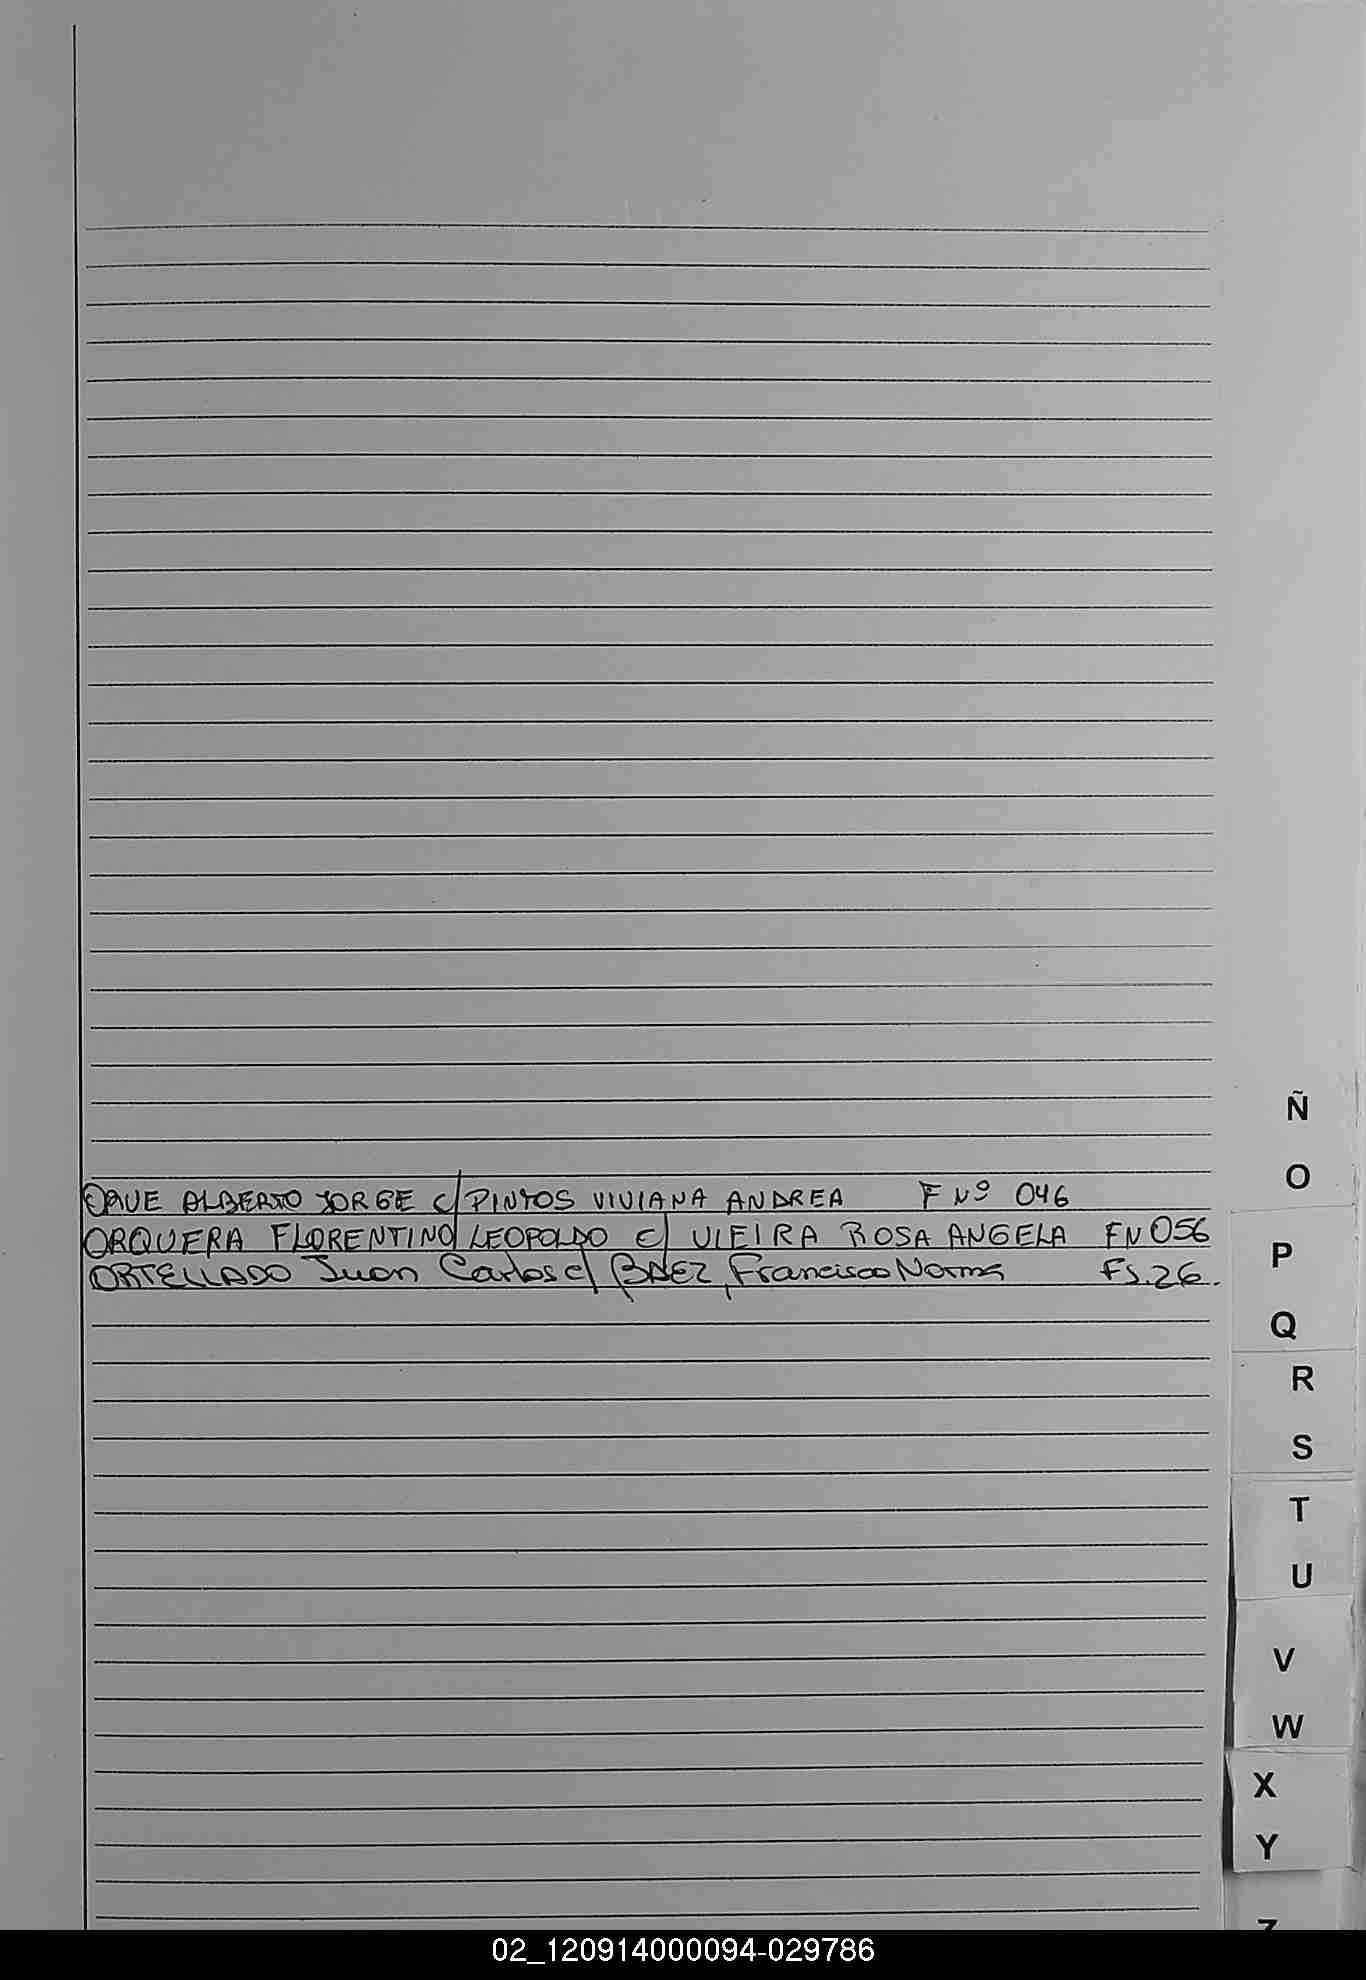 ALBERTO JORGE c/ PINTOS VIVIANA ANDREA F Nº 046
ORQUERA FLORENTINO LEOPOLDO c/ VIEIRA ROSA ANGELA FN 056
ORTELLADO Juan Carlos c/ BAEZ, Francisca Norma Fs. 26.
Ñ
O
P
Q
R
S
T
U
V
W
X
Y
Z
02_120914000094-029786